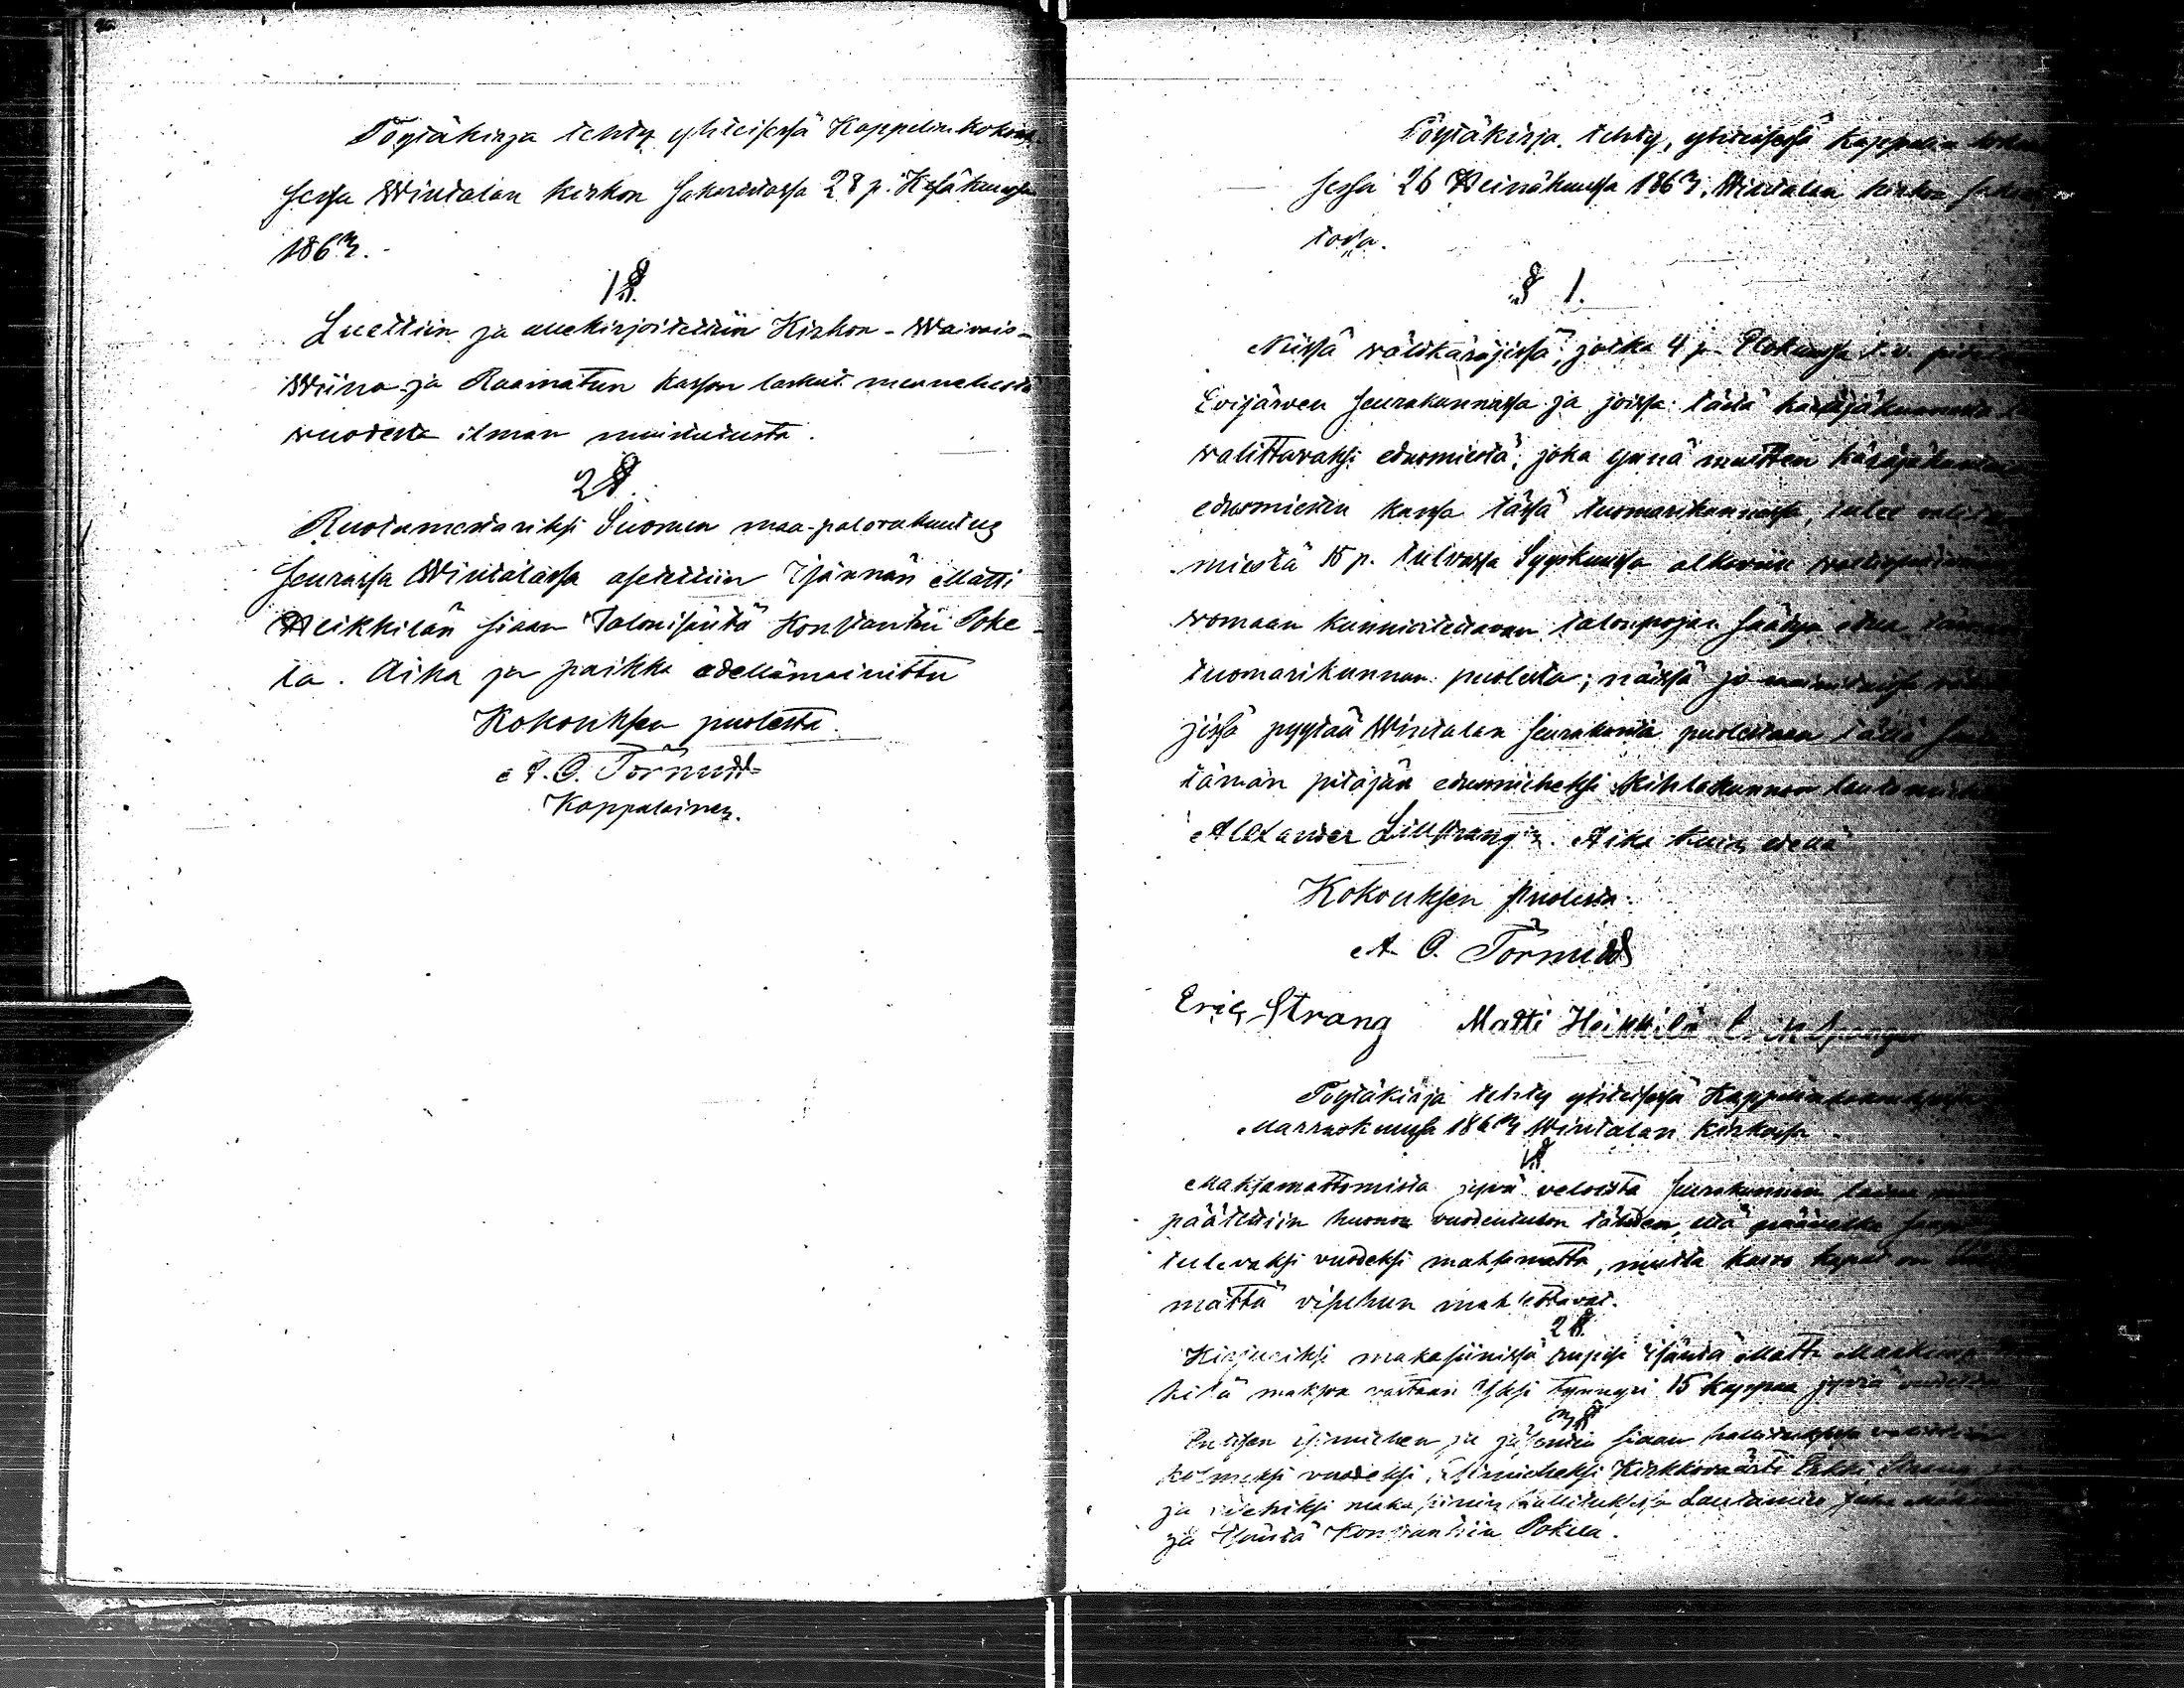 Pöytäkirja tehty yhteisessä Kappelin kokouk-
sessa Wintalan kirkon sakaristossa 28 p. Kesäkuussa
1863.
1 §.
Luettiin ja allekirjoitettiin Kirkon- Waivais-
Wiina- ja Raamatun kassan laskut menneheltä
wuodesta ilman muistutusta.
2 §.
Ruotumestariksi Suomen maa-palovakuutus
seurassa Wintalassa asetettiin Isännän Matti
Heikkilän siaan Talonisäntä Konstantin Poke-
la. Aika ja paikka edellämainittu
Kokouksen puolesta.
A. O. Törnudd
Kappalainen.
Pöytäkirja, tehty, yhteisessä Kappelin
sessa 26 Heinäkuussa 1863, Wintalan kirkon
tossa.
§ 1.
Niissä välikäräjissä, jotka 4 p. Elokuussa t.v.
Evijärven seurakunnassa ja joissa tästä käräjäkunnasta
walittavaksi edusmiestä, joka ynnä muitten käräjäkuntain
edusmiesten kanssa tässä tuomarikunnassa, tulee
miestä 15 p. tulevassa Syyskuussa alkaviin
womaan kunnioitettavan talonpojan säädyn etua
tuomarikunnan puolesta; näissä jo mainituissa
jissä pyytää Wintalan seurakunta puolestaan
tämän pitäjän edusmieheksi Kihlakunnan
Alexander Lillstrang'in. Aika kuin edellä
Kokouksen puolesta.
A. O. Törnudd
Eric Strang Matti Heikkilä
Pöytäkirja tehty yhteisessä Kappelin
Marraskuussa 1863 Wintalan kirkossa
1 §.
Maksamattomista jyvä veloista seurakunnan laina
päätettiin huonon vuodentulon tähden, että päävelka
tulevaksi vuodeksi maksamatta, mutta kasvo kapat on
mättä viipehen maksettavat.
2 §.
Kirjuriksi makasiinissä rupesi isäntä Matti
hitä maksoa vastaan Yksi tynnyri 15 kappaa jyviä
3 §
Entisen esimiehen ja jäsenten siaan hallituksessa
kolmeksi vuodeksi, Esimieheksi Kirkkoväärti Erkki
ja makasiinin hallituksessa Lautamies
ja Isäntä Konstantin Pokela.